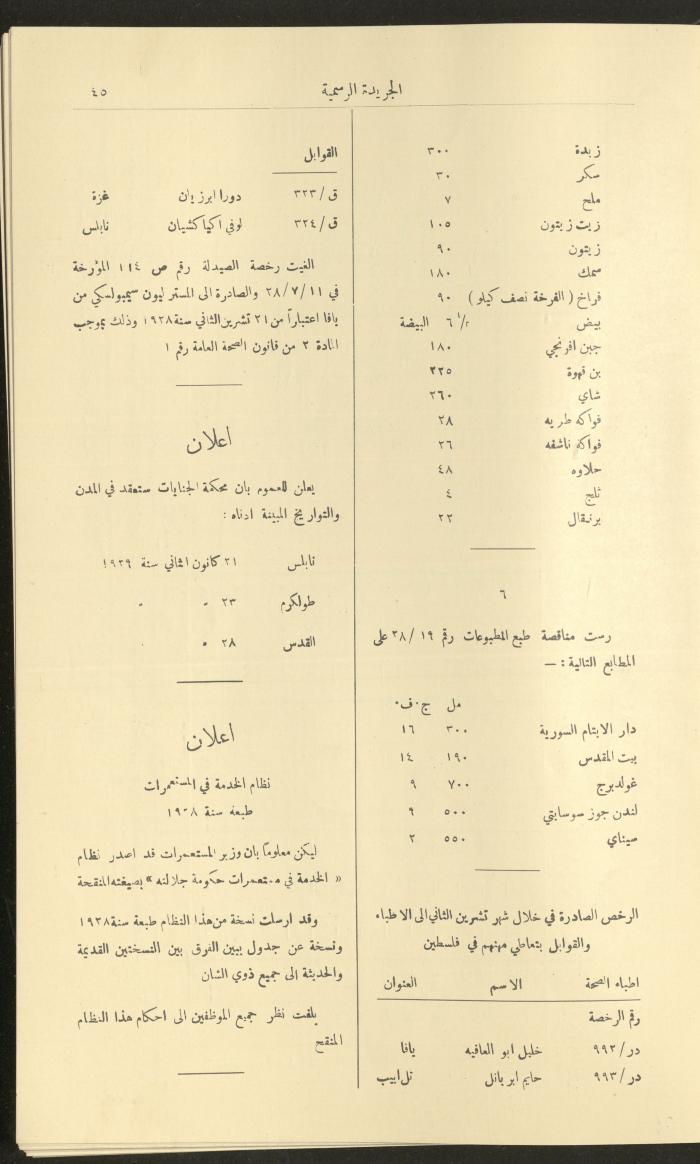 الجريدة الرسمية
٤٥
زبدة ٣٠٠
سكر ٣٠
ملح ٧
زيت زيتون ١٠٥
زيتون ٩٠
سمك ١٨٠
فراخ ( الفرخة نصف كيلو ) ٩٠
بيض ٦ ١/٢ البيضة
جبن افرنجي ١٨٠
بن قهوة ٢٢٥
شاي ٢٦٠
فواكه طريه ٢٨
فواكة ناشفه ٢٦
حلاوه ٤٨
ثلج ٤
برتقال ٢٢
٦
رست مناقصة طبع المطبوعات رقم ١٩ /٢٨ على
المطابع التالية : —
مل ج.ف.
دار الايتام السورية ٣٠٠ ١٦
بيت المقدس ١٩٠ ١٤
غولدبرج ٧٠٠ ٩
لندن جوز سوسايتي ٥٠٠ ٩
سيناي ٥٥٠ ٢
الرخص الصادرة في خلال شهر تشرين الثاني الى الاطباء
والقوابل بتعاطي مهنهم في فلسطين
اطباء الصحة الاسم العنوان
رقم الرخصة
در/٩٩٢ خليل ابو العافيه يافا
در/٩٩٣ حايم ابربانل تل ابيب
القوابل
ق/٣٢٣ دورا ابرزيان غزة
ق/٣٢٤ لوفي اكياكشيان نابلس
الغيت رخصة الصيدلة رقم ص ١١٤ المؤرخة
في ٢٨/٧/١١ والصادرة الى المستر ليون سيمبولسكي من
يافا اعتباراً من ٢١ تشرين الثاني سنة ١٩٢٨ وذلك بموجب
المادة ٢ من قانون الصحة العامة رقم ١
اعلان
يعلن للعموم بان محكمة الجنايات ستعقد في المدن
والتواريخ المبينة ادناه :
نابلس ٢١ كانون الثاني سنة ١٩٢٩
طولكرم ٢٣ » »
القدس ٢٨ »
اعلان
نظام الخدمة في المستعمرات
طبعة سنة ١٩٢٨
ليكن معلوماً بان وزير المستعمرات قد اصدر نظام
« الخدمة في مستعمرات حكومة جلالته » بصيغته المنقحة
وقد ارسلت نسخة من هذا النظام طبعة سنة ١٩٢٨
ونسخة عن جدول يبين الفرق بين النسختين القديمة
والحديثة الى جميع ذوي الشان
يلفت نظر جميع الموظفين الى احكام هذا النظام
المنقح